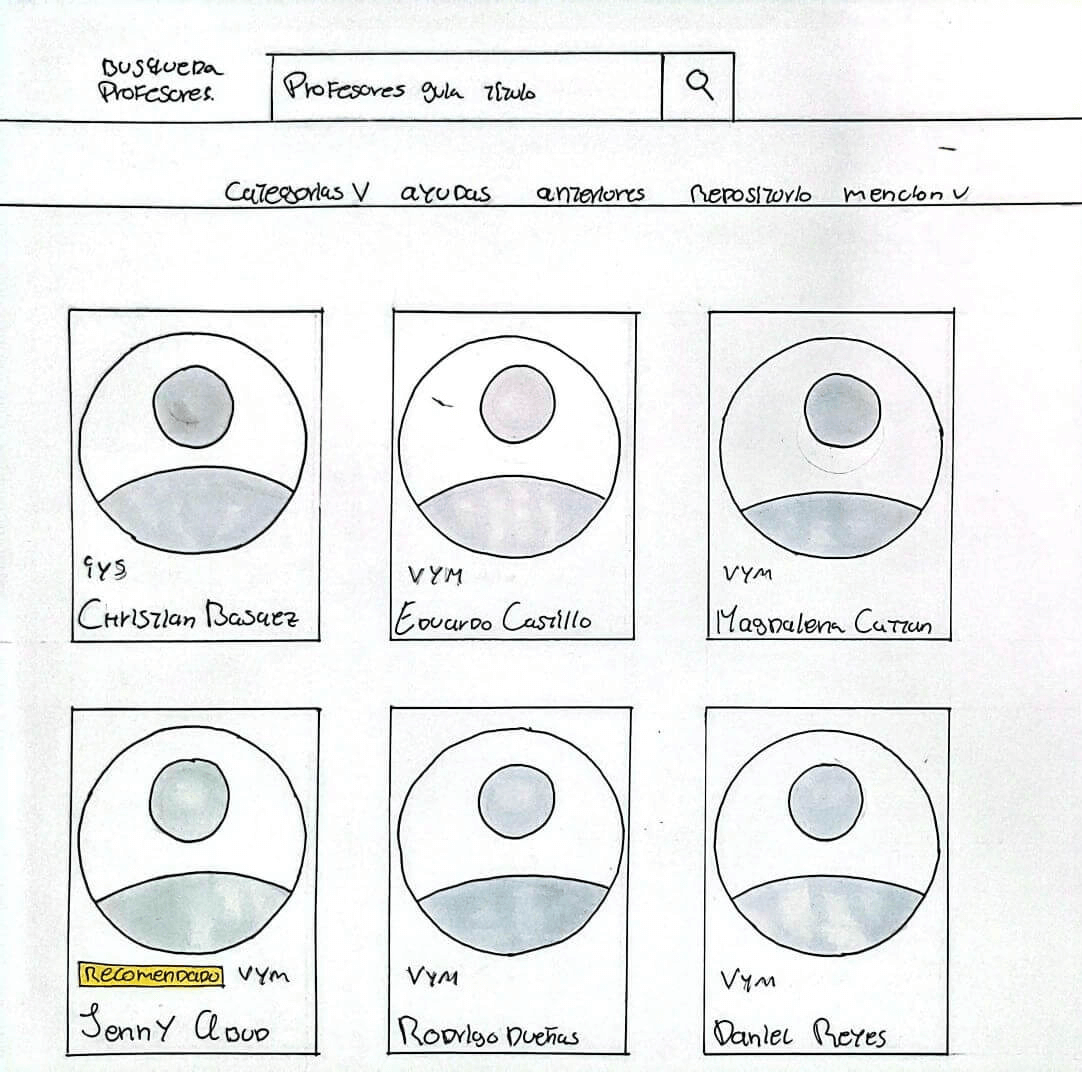 BUSQUEDA
PROFESORES.
PROFESORES guia título
Categorias V ayudas anteriores Repositorio mencion V
VYM
VYM
Christian Basaez
Eduardo Castillo
Magdalena Catzan
RECOMENDADO VYM
VYM
VYM
Jenny Cloud
Rodrigo Dueñas
Daniel Reyes